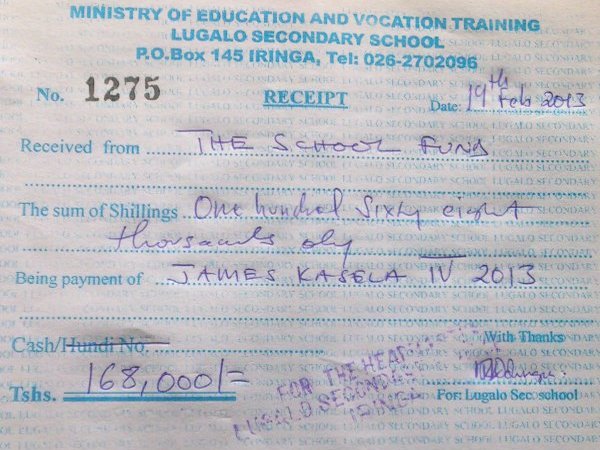 MINISTRY OF EDUCATION AND VOCATION TRAINING
LUGALO SECONDARY SCHOOL
P.O.Box 145 IRINGA, Tel: 026-2702096
No. 1275 RECEIPT Date: 19th Feb 2013
Received from THE SCHOOL FUND
The sum of Shillings One hundred Sixty eight
thousands only
Being payment of JAMES KASELA IV 2013
Cash/Hundi No.
With Thanks
Tshs. 168,000/=
For: Lugalo Sec. school
FOR THE HEAD
LUGALO SECONDARY
IRINGA